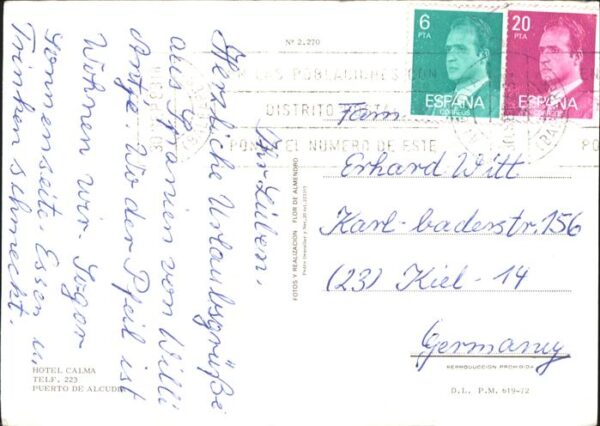 Nº 2.270
6
PTA
ESPAÑA
CORREOS
20
PTA
ESPAÑA
LAS POBLACIONES CON
DISTRITO POSTAL
PONGA EL NUMERO DE ESTE
Fam.
Erhard Witt
Karl-baderstr. 156
(23) Kiel-14
Germany
REPRODUCCION PROHIBIDA
D. L. P.M. 619-72
FOTOS Y REALIZACION FLOR DE ALMENDRO
Ihr Lieben,
Herzliche Urlaubsgrüße
aus Spanien von Willi
Antje. Wo der Pfeil ist
Wohnen wir. Sogar
Sonnenseite Essen u.
Trinken schmeckt.
HOTEL CALMA
TELF. 223
PUERTO DE ALCUDIA